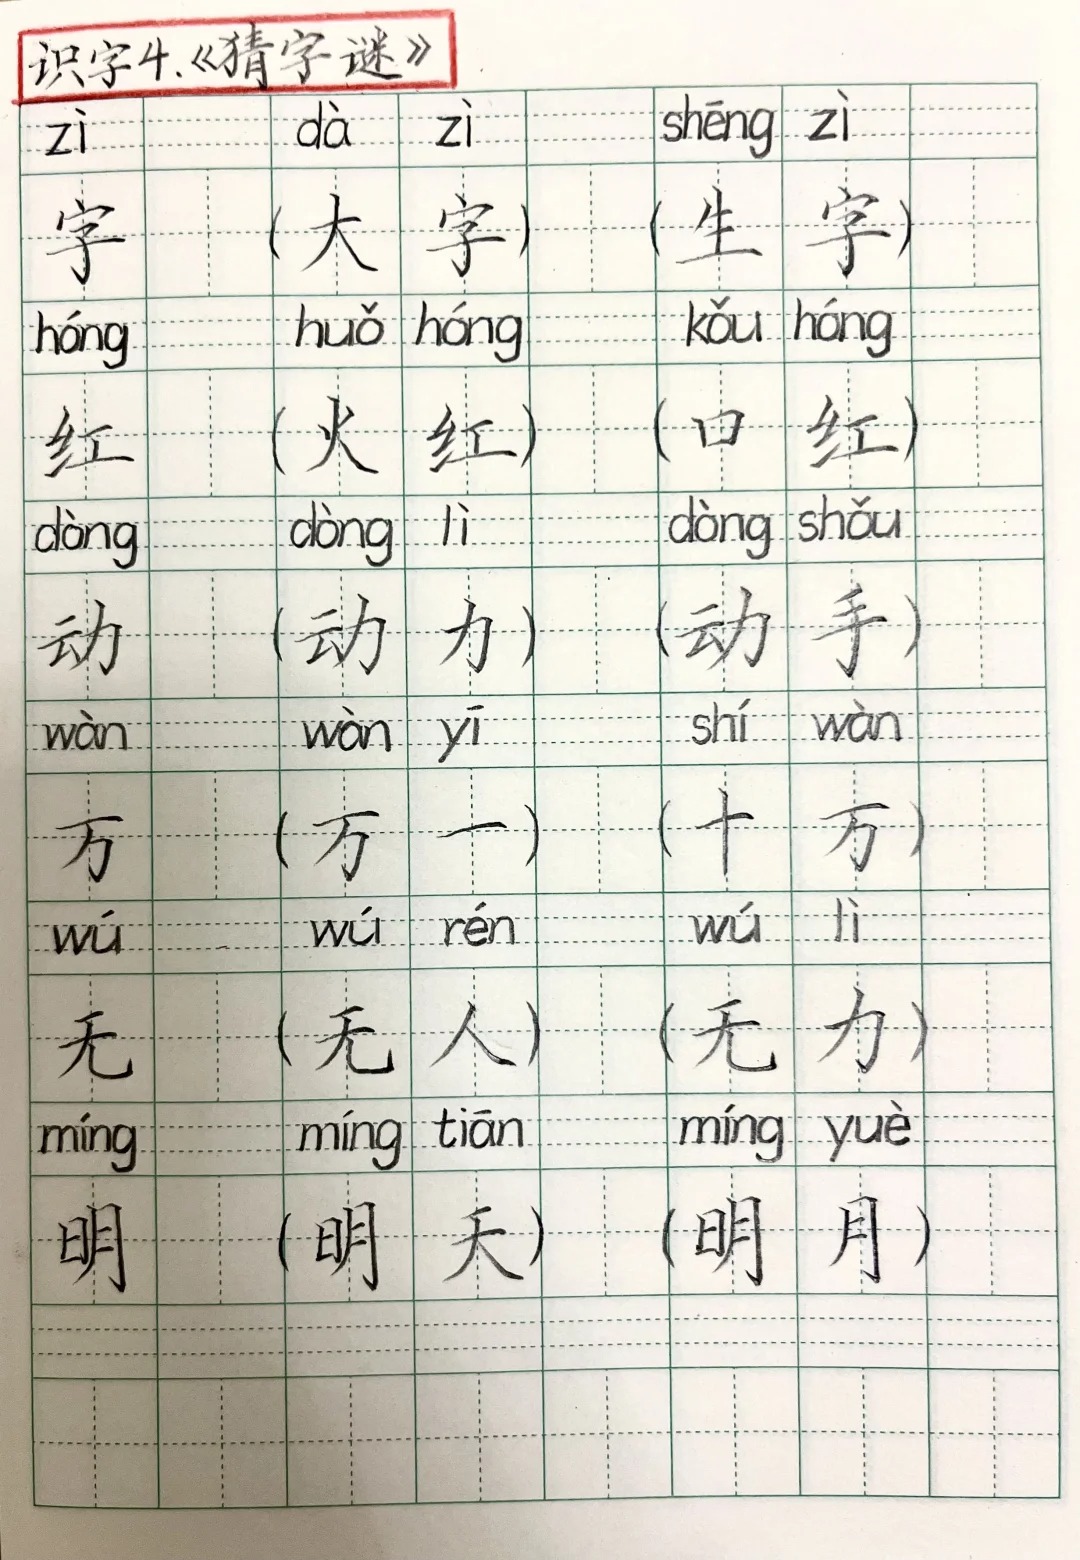 识字4.《猜字谜》
zì dà zì shēng zì
字 (大字) (生字)
hóng huǒ hóng kǒu hóng
红 (火红) (口红)
dòng dòng lì dòng shǒu
动 (动力) (动手)
wàn wàn yī shí wàn
万 (万一) (十万)
wú wú rén wú lì
无 (无人) (无力)
míng míng tiān míng yuè
明 (明天) (明月)